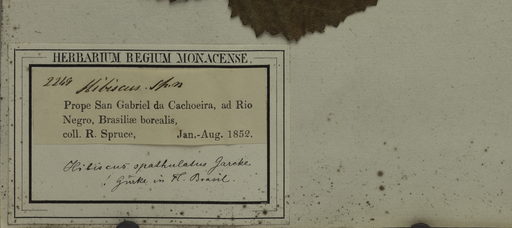 HERBARIUM REGIUM MONACENSE.
2248 Hibiscus. Sp. n
Prope San Gabriel da Cachoeira, ad Rio
Negro, Brasiliæ borealis,
coll. R. Spruce, Jan.-Aug. 1852.
Hibiscus spathulatus Garcke
! Gürke in Fl. Brasil.